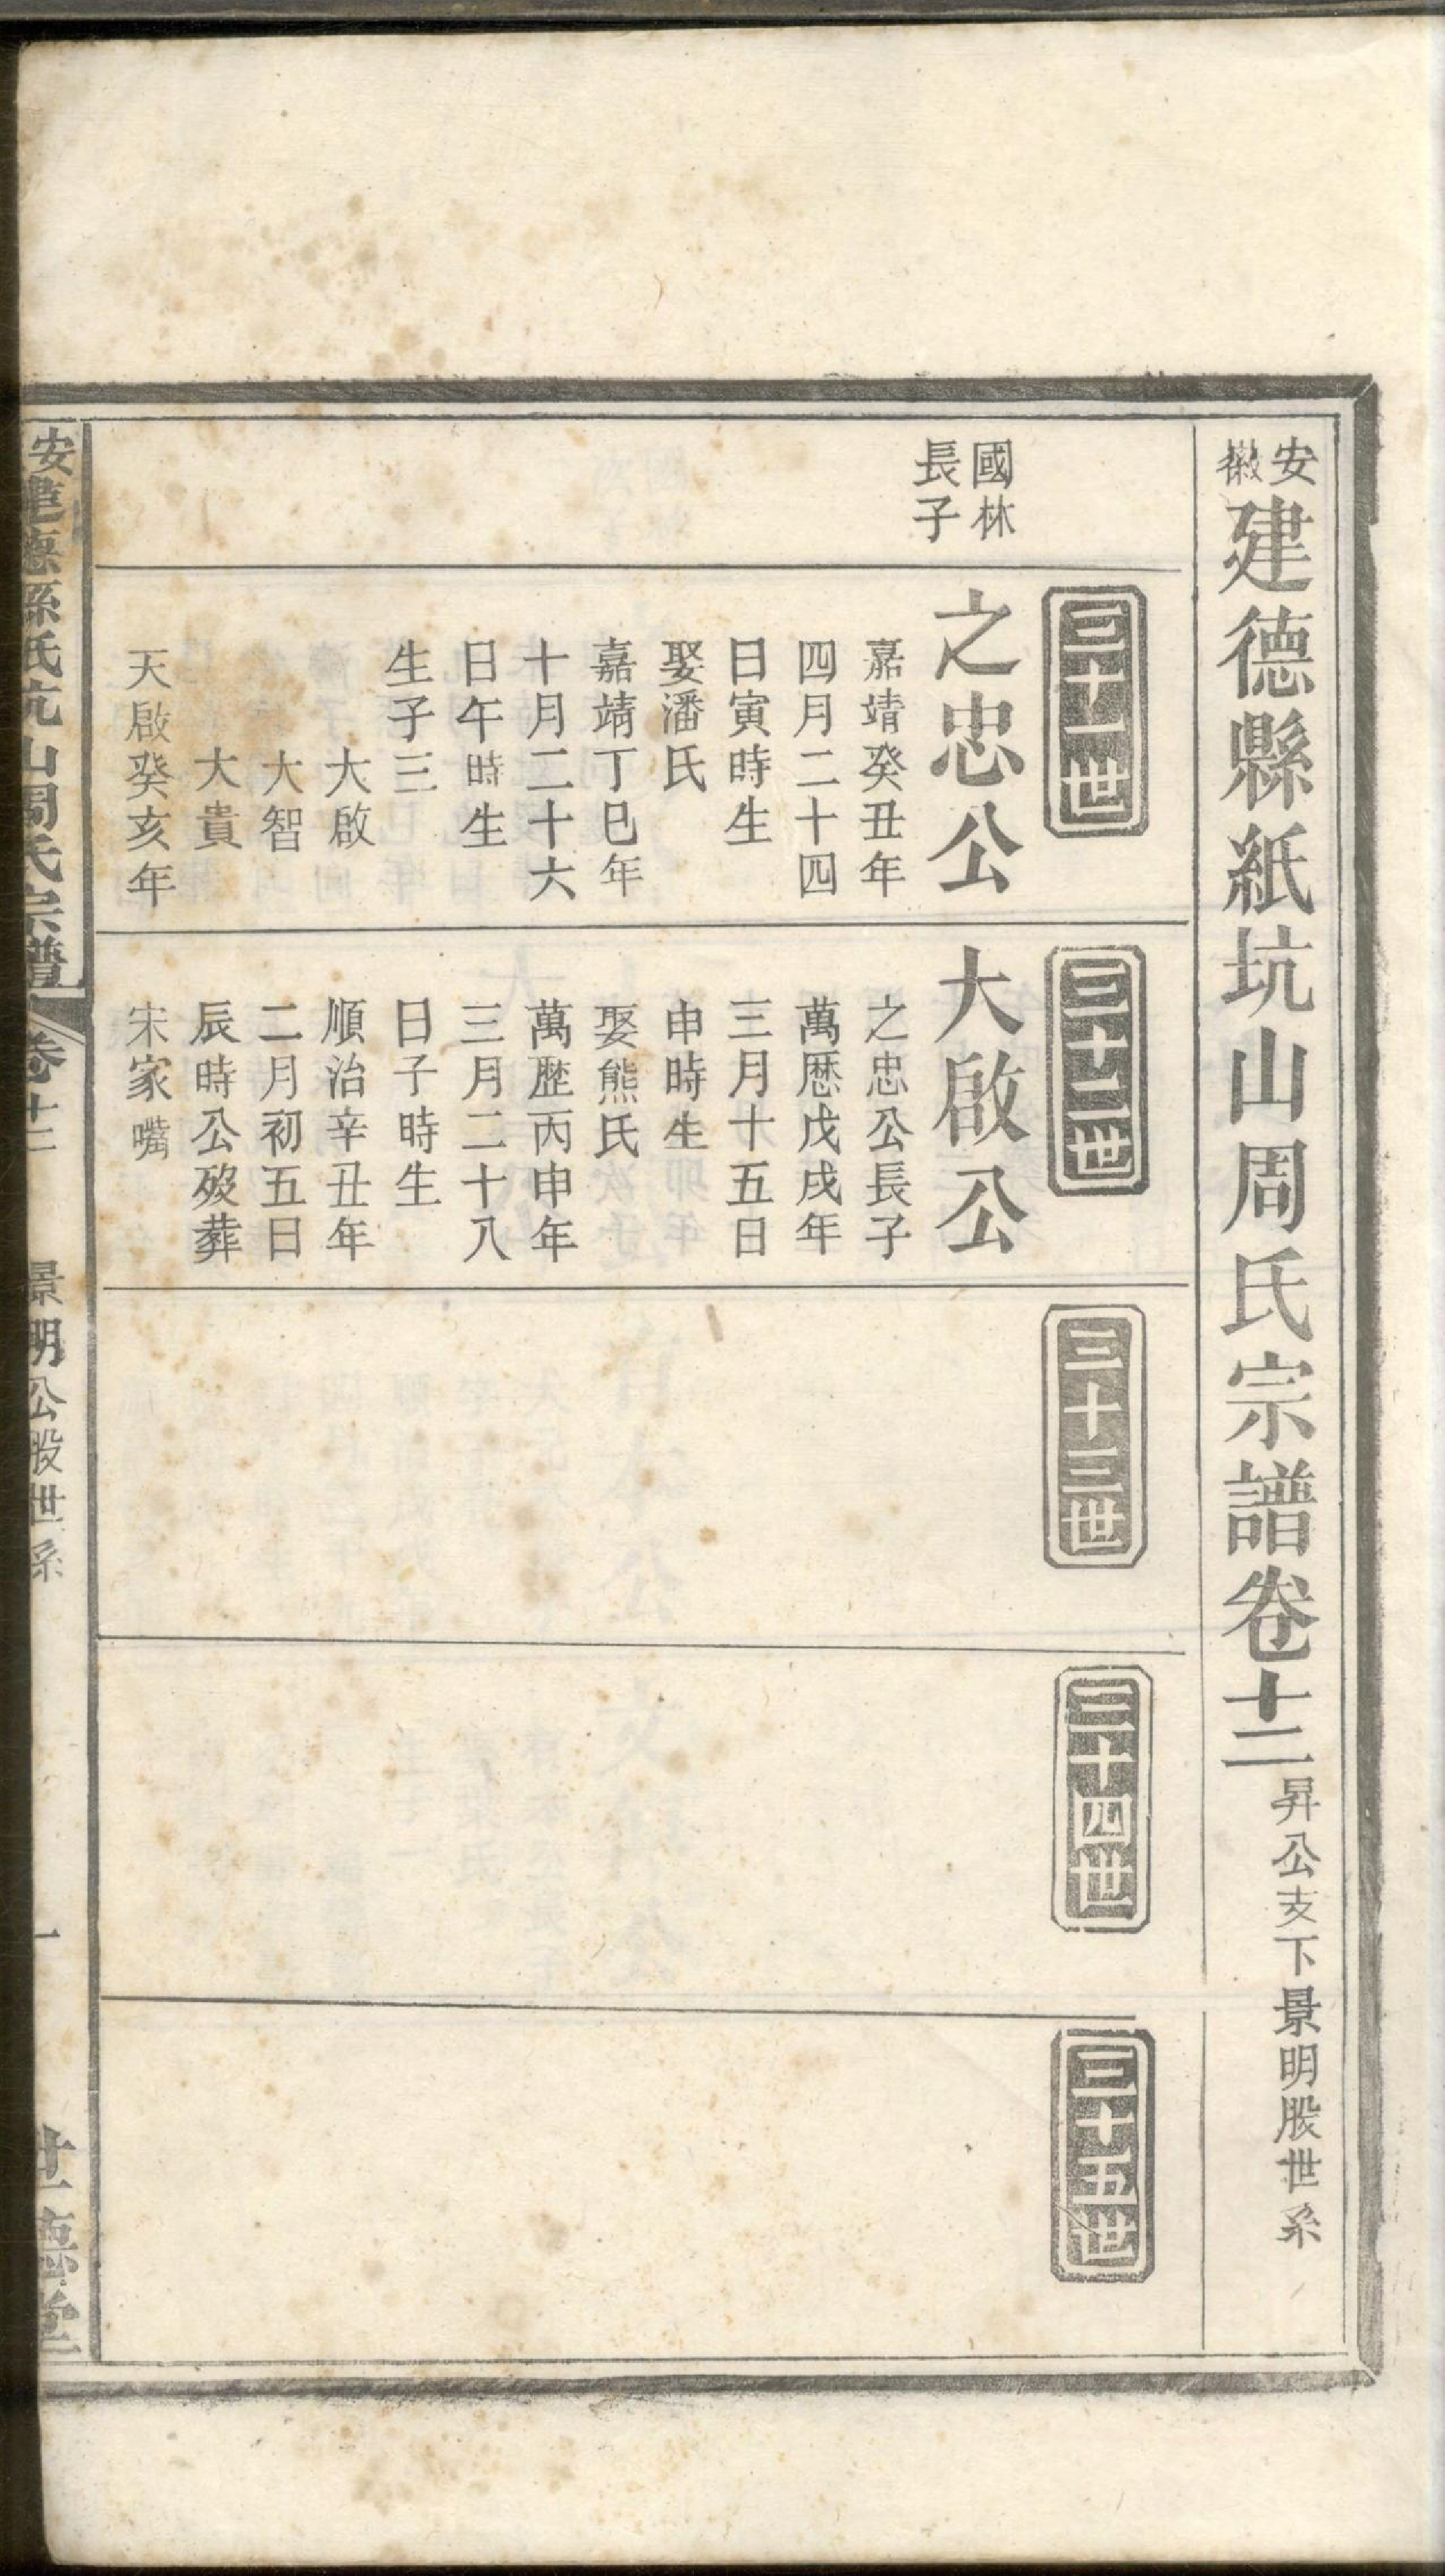 安徽建德縣紙坑山周氏宗譜卷十二昇公支下景明股世系
國林
長子
三十一世
之忠公
嘉靖癸丑年
四月二十四
日寅時生
娶潘氏
嘉靖丁巳年
十月二十六
日午時生
生子三
大啟
大智
大貴
天啟癸亥年
三十二世
大啟公
之忠公長子
萬歷戊戌年
三月十五日
申時生
娶熊氏
萬歷丙申年
三月二十八
日子時生
順治辛丑年
二月初五日
辰時公歿葬
宋家嘴
三十三世
三十四世
三十五世
安建德縣紙坑山周氏宗譜
卷十二
景明公股世系
一
世德堂